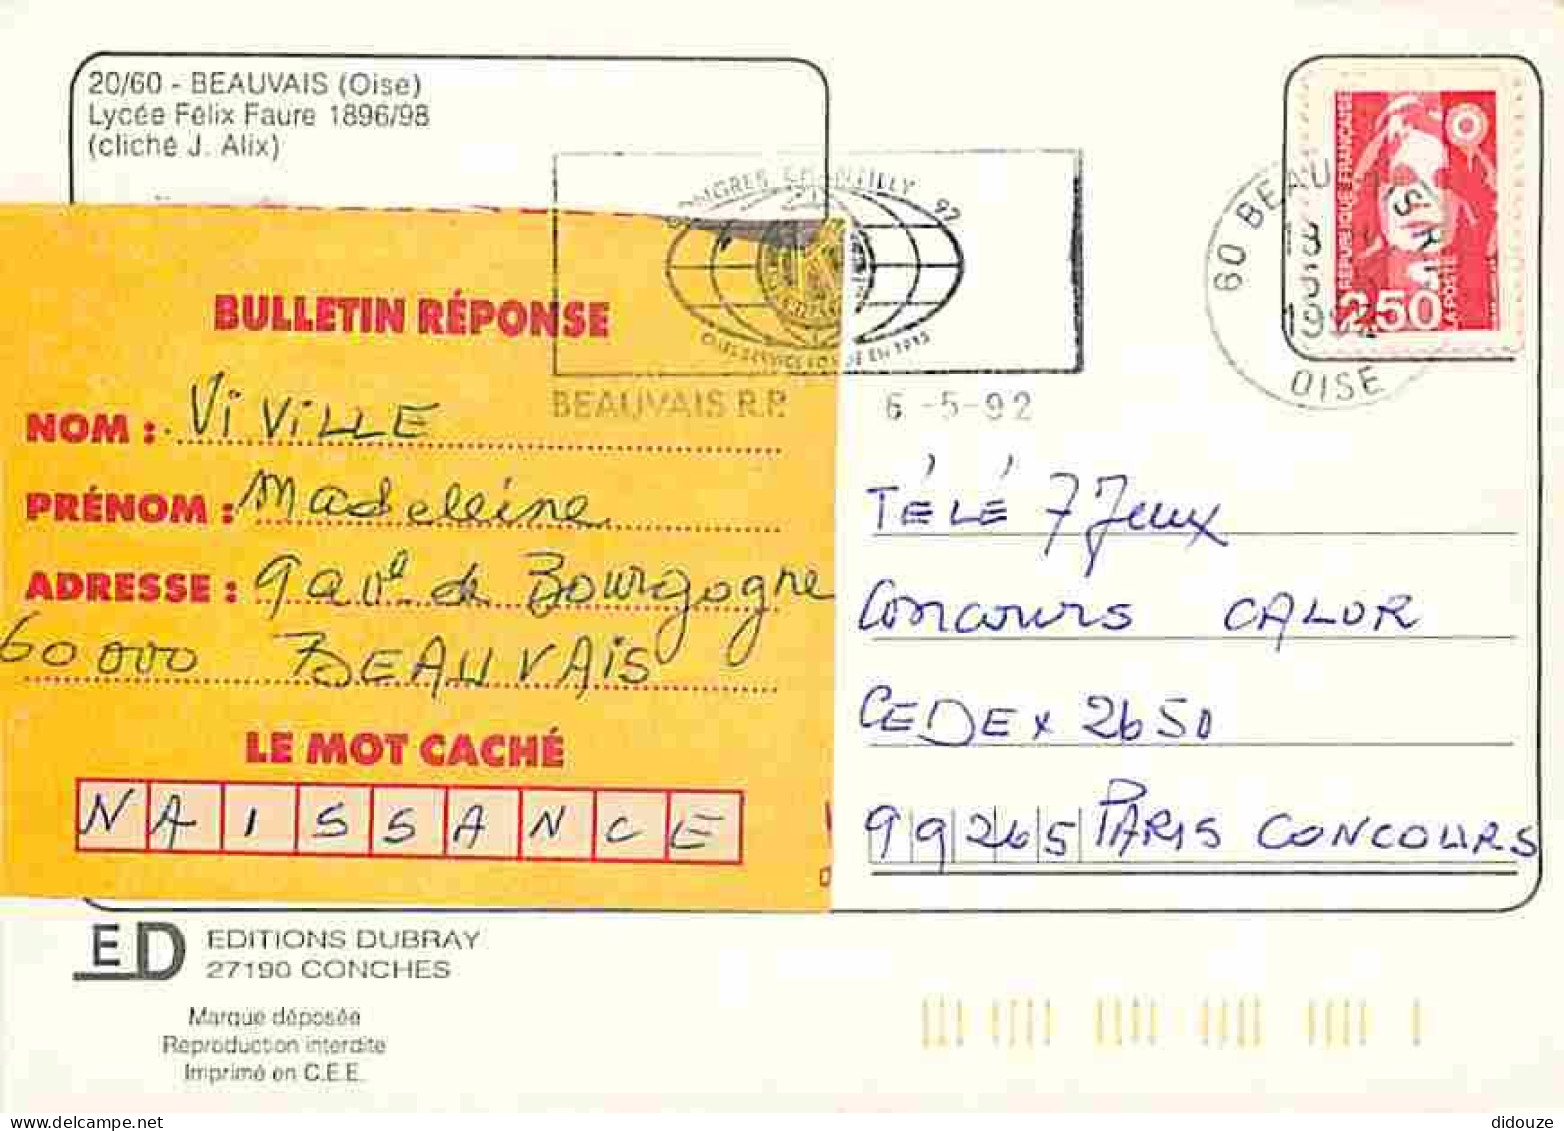 20/60 - BEAUVAIS (Oise)
Lycée Félix Faure 1896/98
(cliché J. Alix)
CONGRES CHANTILLY 92
BEAUVAIS R.P. 6-5-92
60 BEAUVAIS R.P.
OISE
REPUBLIQUE FRANÇAISE
2,50
LA POSTE
BULLETIN RÉPONSE
NOM : VIVILLE
PRÉNOM : Madeleine
ADRESSE : 9 avᵉ de Bourgogne
60000 BEAUVAIS
LE MOT CACHÉ
NAISSANCE
TÉLÉ 7 Jeux
Concours CALOR
CEDEX 2650
99265 PARIS CONCOURS
ED EDITIONS DUBRAY
27190 CONCHES
Marque déposée
Reproduction interdite
Imprimé en C.E.E.
didouze